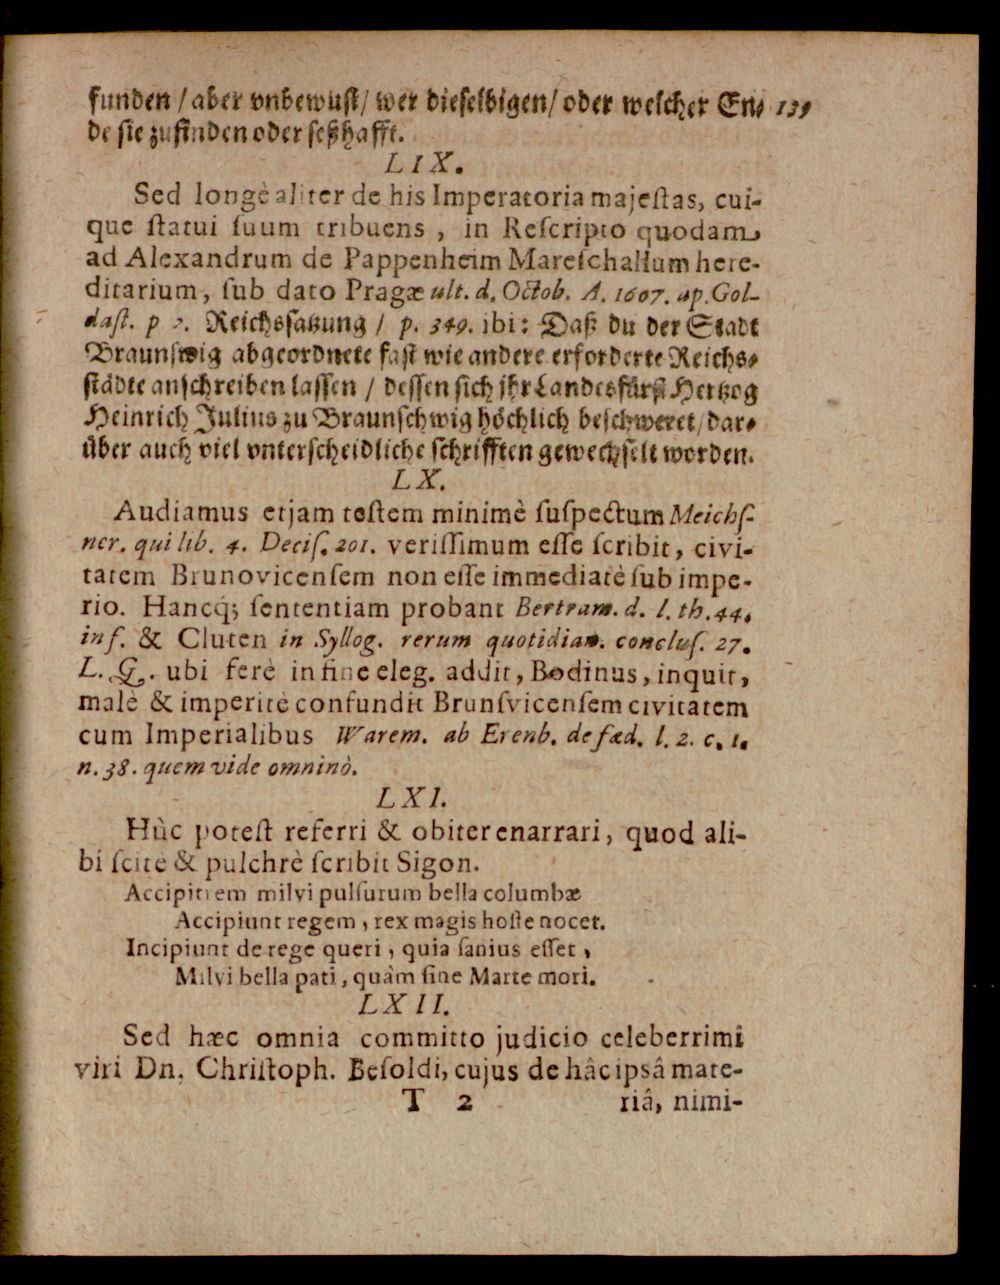 funden / aber vnbewust / wer dieselbigen / oder welcher En⸗ 139
de sie zufinden oder seßhafft.
LIX.
Sed longè aliter de his Imperatoria majeſtas, cui-
que ſtatui ſuum tribuens , in Reſcripto quodam
ad Alexandrum de Pappenheim Mareſchallum here-
ditarium, ſub dato Pragæ ult. d. Octob. A. 1607. ap. Gol-
daſt. p 2. Reichsſatzung / p. 349. ibi: Daß du der Stadt
Braunſwig abgeordnete faſt wie andere erforderte Reichs⸗
ſtädte anſchreiben laſſen / deſſen ſich jhr Landesfürſt Hertzog
Heinrich Julius zu Braunſchwig höchlich beſchweret / dar⸗
über auch viel vnterſcheidliche ſchrifften gewechſelt worden.
LX.
Audiamus etjam teſtem minimè ſuſpectum Meichſ-
ner. qui lib. 4. Deciſ. 201. veriſſimum eſſe ſcribit, civi-
tatem Brunovicenſem non eſſe immediatè ſub impe-
rio. Hancq́; ſententiam probant Bertram. d. l. th. 44.
inf. & Cluten in Syllog. rerum quotidian. concluſ. 27.
L. G. ubi ferè in fine eleg. addit, Bodinus, inquit,
malè & imperitè confundit Brunſvicenſem civitatem
cum Imperialibus Warem. ab Erenb. de fæd. l. 2. c. 1.
n. 38. quem vide omninò.
LXI.
Hùc poteſt referri & obiter enarrari, quod ali-
bi ſcitè & pulchrè ſcribit Sigon.
Accipitrem milvi pulſurum bella columbæ
Accipiunt regem , rex magis hoſte nocet.
Incipiunt de rege queri , quia ſanius eſſet ,
Milvi bella pati , quàm ſine Marte mori.
LXII.
Sed hæc omnia committo judicio celeberrimi
viri Dn. Chriſtoph. Beſoldi, cujus de hâc ipsâ mate-
T 2 riâ, nimi-